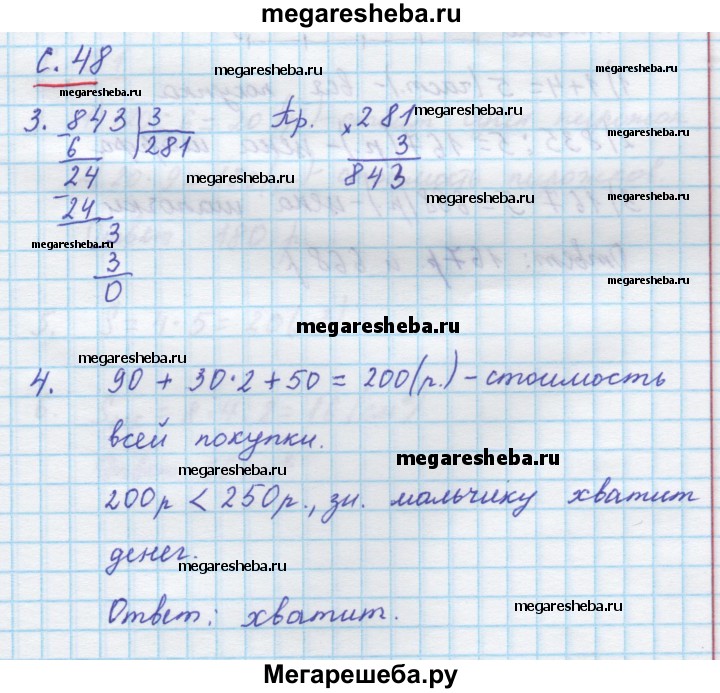 megaresheba.ru
с. 48
megaresheba.ru
megaresheba.ru
megaresheba.ru
3. 843 | 3 Пр. × 281
- 6 281 3
24 843
- 24
megaresheba.ru
megaresheba.ru
3
3
0
megaresheba.ru
megaresheba.ru
megaresheba.ru
4. 90 + 30·2 + 50 = 200 (р.) – стоимость
всей покупки.
megaresheba.ru
megaresheba.ru
200р < 250р., зн. мальчику хватит
денег.
megaresheba.ru
megaresheba.ru
Ответ: хватит.
Мегарешеба.ру